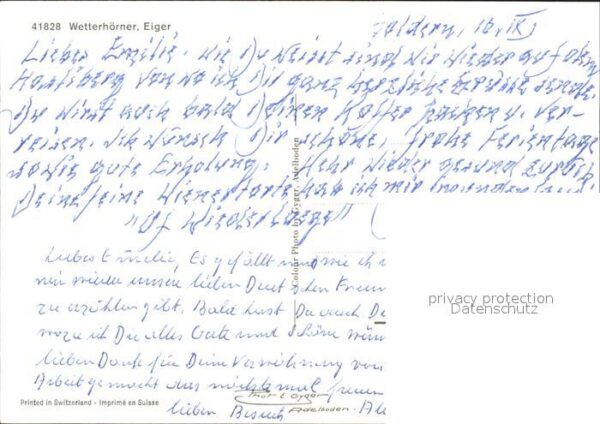 41828 Wetterhörner, Eiger
Goldern, 16. IX.
Lieber Emilie. Wie Du weisst sind wir wieder auf dem
Hasliberg von wo ich Dir ganz herzliche Grüsse sende.
Du wirst auch bald Deinen Koffer packen u. ver-
reisen. Ich wünsch Dir schöne, frohe Ferientage
sowie gute Erholung. Kehr wieder gesund zurück.
Deine feine Wienertorte hab ich mir
"Uf Wiederluege"
Liebes Emilie, Es gefällt uns wie
wir wieder unsere lieben Deutschen
zu erzählen gibt. Bald hast Du auch
wozu ich Dir alles Gute und Schöne
lieben Dank für Deine Verwöhnung
Arbeit gemacht das nächste mal
lieben Besuch
Colour Photo by Gyger, Adelboden
privacy protection
Datenschutz
Printed in Switzerland - Imprimé en Suisse
Phot E. Gyger
Adelboden